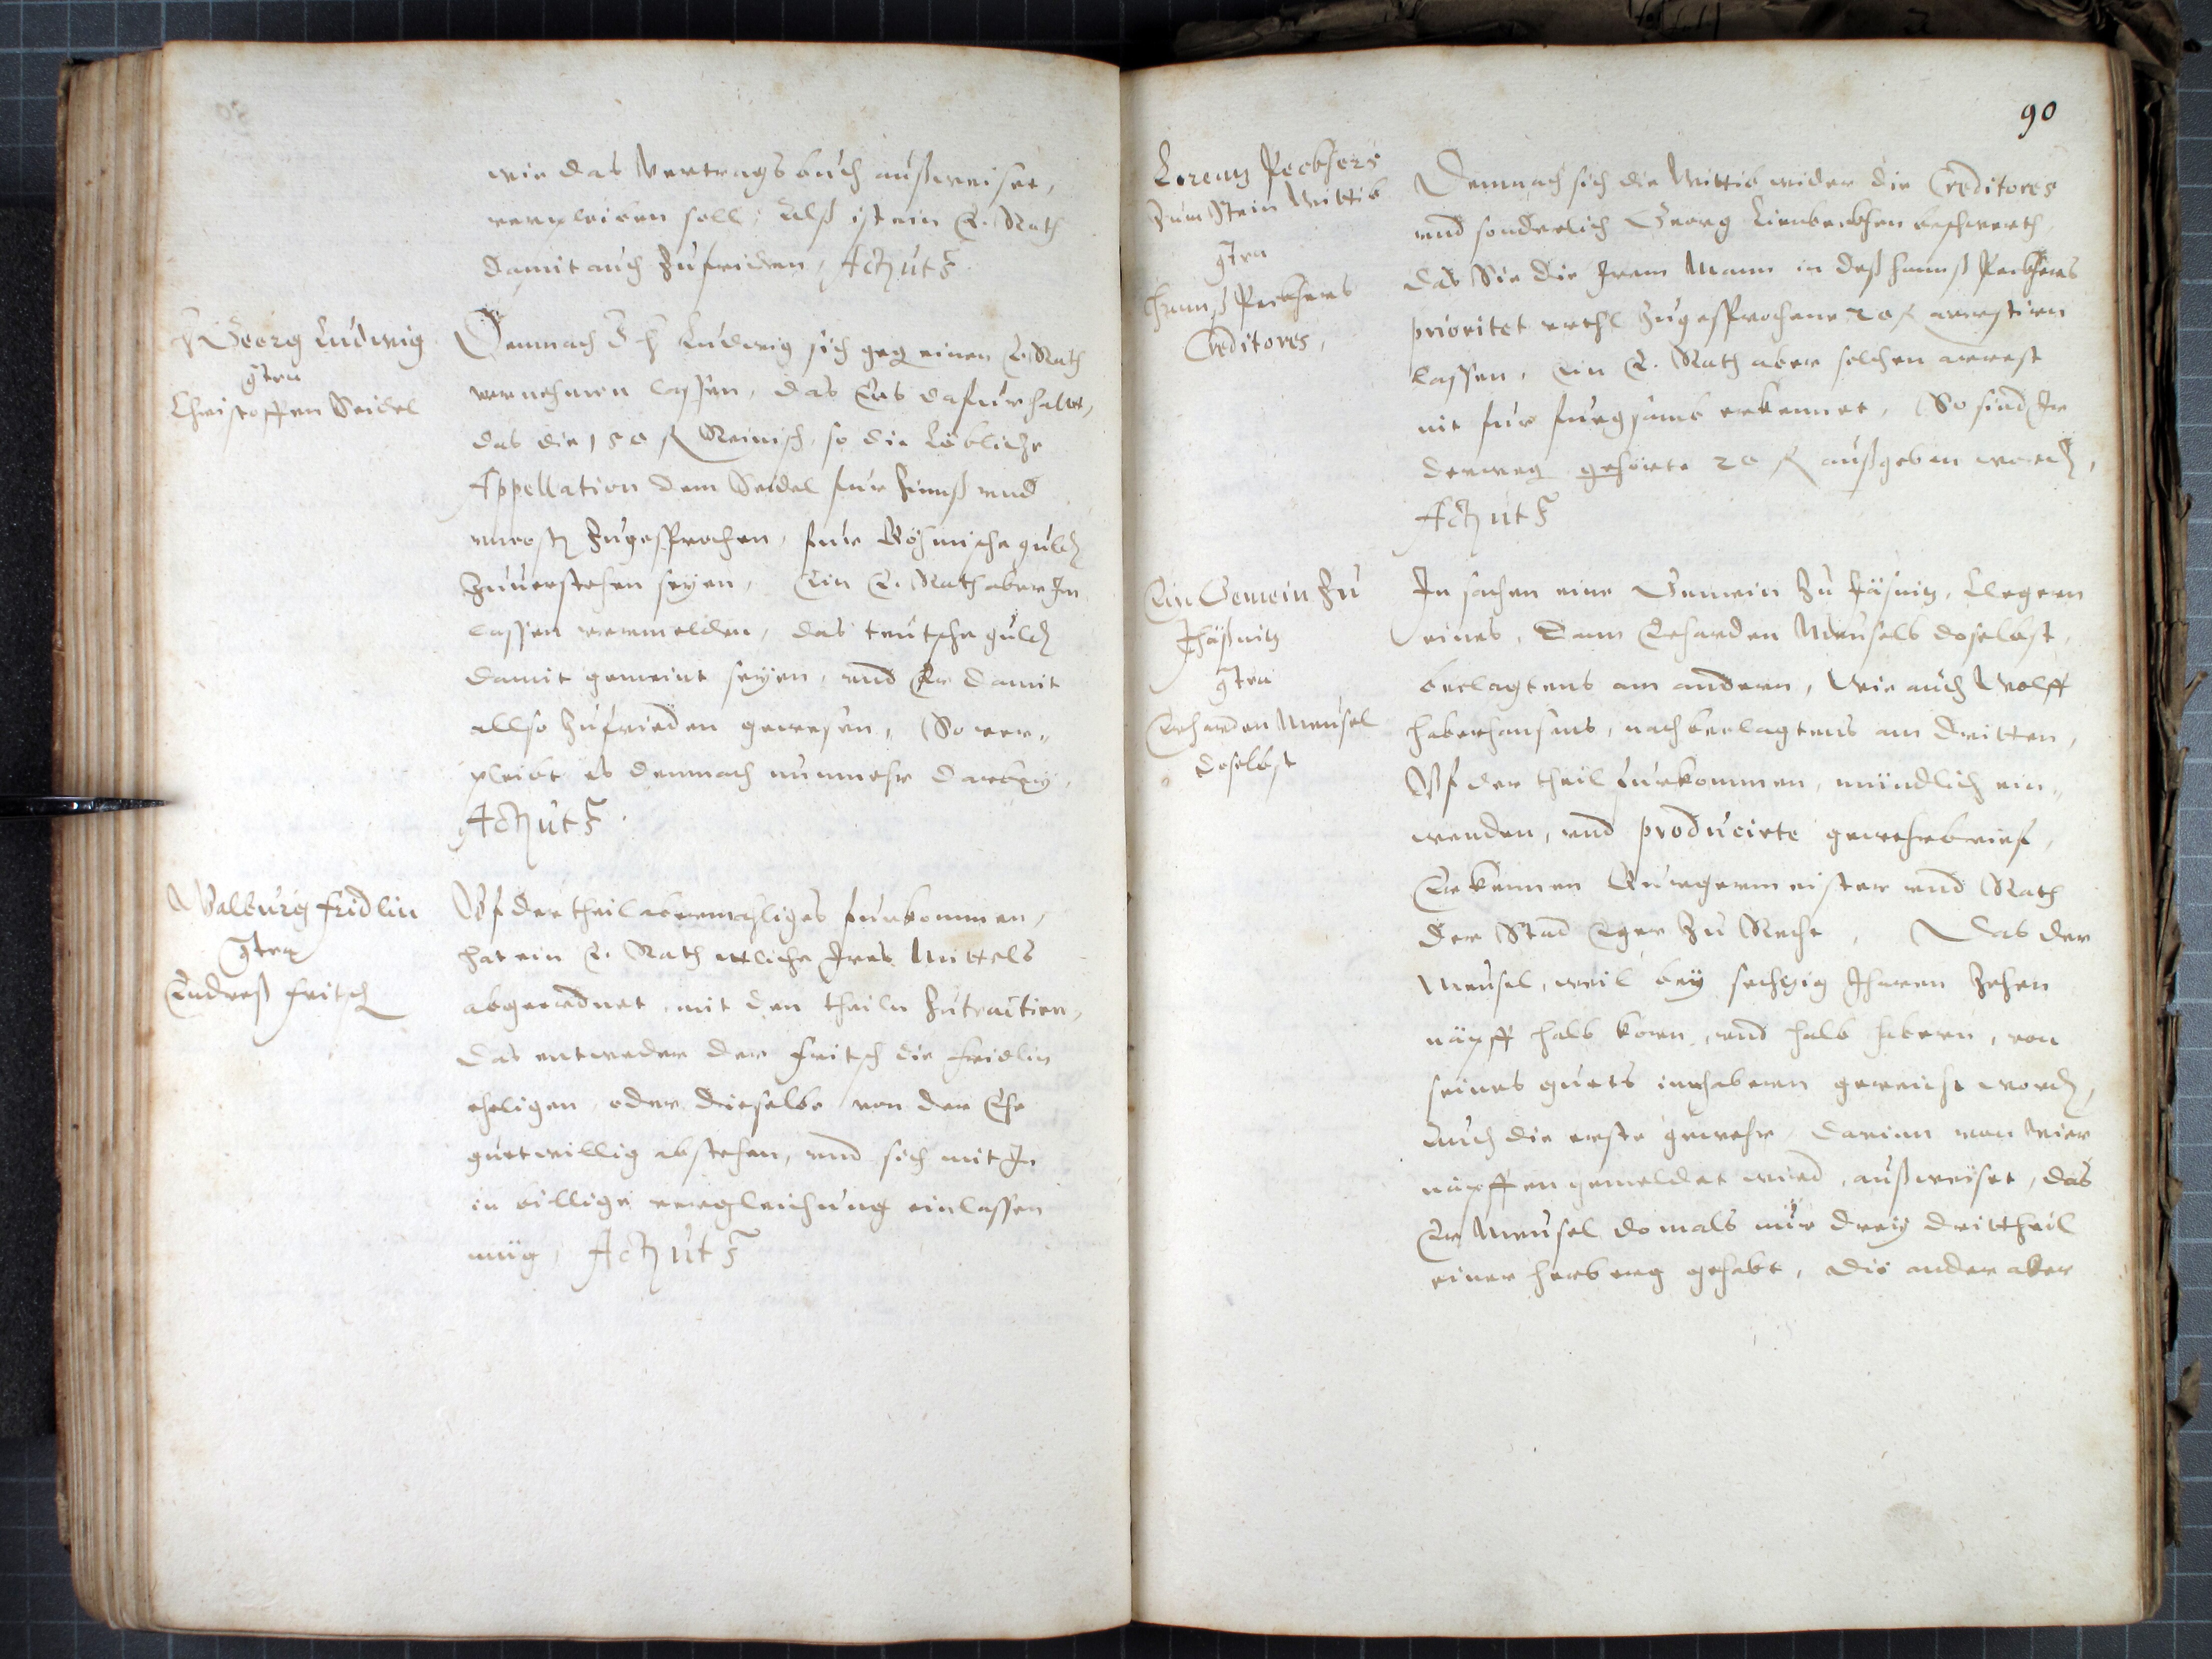 wie das Vertragsbuch außweiset,
verpleiben soll, Alß ist ein E. Rath
damit auch zufrieden, Act: ut s
H Georg Ludwig
gten
Christoffen Seidel
Demnach H Ludwig sich geg einen E. Rath
vernehmen lassen, das Ers dafur halte,
das die 150 fl Reinisch, so die Löbliche
Appellation dem Seidel fur Zinnß vnd
vncosten zugesprochen, fur Böhmische guld
zuuerstehen seyen, Ein E. Rath aber Im
lassen vermelden, das teutsche guld
damit gemeint seyen, vnd Er damit
allso zufrieden gewesen, So ver-
pleibt es demnach nunmehr darbey,
Act: ut s
Walburg fridlin
gten
Endreß fritsch
Vf der theil abermahliges furkommen,
hat ein E. Rath ettliche Ires Mittels
abgeordnet, mit den theiln zutractirn,
das entweder der fritsch die fridlin
eheligen, oder dieselbe von der Ehe
guetwillig abstehen, vnd sich mit Im
in billige vergleichung einlassen
müg, Act: ut s
90
Lorentz Peckhers
zum Stein Wittib
gten
Hannß Peckhers
Creditores,
Demnach sich die Wittib wider die Creditores
vnd sonderlich Georg beschwerth,
das Sie die Irem Mann in deß Hannß Peckhers
prioritet vrthl zugesprochene 20 fl arrestirn
lassen, Ein E. Rath aber solchen arrest
nit fur fuegsamb erkennet, So sind Ir
derweg gehörte 20 fl außgeben word,
Act: ut s
Ein Gemein zu
gten
Erharden Meusel
doselbst
In sachen einer Gemein zu Clegern
eines, Dann Erharden Meusels doselbst,
beclagtens am andern, Wie auch Wolff
Haberhansens, nachbeclagtens am dritten,
Vf der theil furkommen, mündlich ein-
wenden, vnd producirte gewehrbrief,
Erkennen Burgermeister vnd Rath
der Stad Eger zu Recht, Das der
Meusel, weil bey sechtzig Iharen zehen
näpff halb korn, vnd halb habern, von
seines guets innhabern gereicht word,
Auch die erste gewehr, darinn von vier
näpffen gemeldet wird, außweiset, das
Er Meusel domals nur drey drittheil
einer herberg gehabt, die ander aber